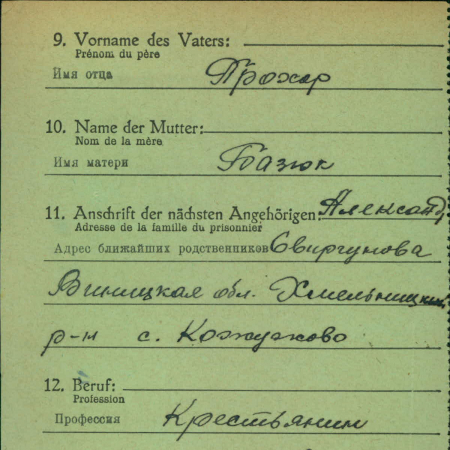 9. Vorname des Vaters:
Prénom du père
Имя отца Прохор
10. Name der Mutter:
Nom de la mère
Имя матери Базюк
11. Anschrift der nächsten Angehörigen: Александ
Adresse de la famille du prisonnier
Адрес ближайших родственников Свиргунова
Виницкая обл. Хмельницкий
р-н с. Кожухово
12. Beruf:
Profession
Профессия Крестьянин